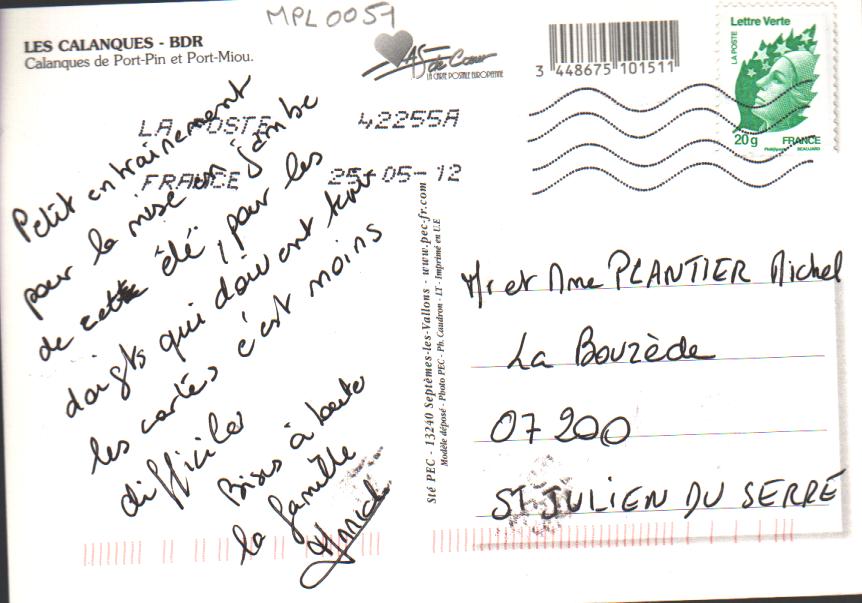 MPL0051
LES CALANQUES - BDR
Calanques de Port-Pin et Port-Miou.
AS de Cœur
LA CARTE POSTALE EUROPEENNE
3 448675 101511
Lettre Verte
LA POSTE
20g FRANCE
LA POSTE 42255A
FRANCE 25-05-12
Petit entrainement
pour la mise en jambe
de cette été, pour les
doigts qui doivent tenir
les cartes c'est moins
difficile
Bises à toute
la famille
Sté PEC - 13240 Septèmes-les-Vallons - www.pec-fr.com
Modèle déposé - Photo PEC - Ph. Caudron - LT - Imprimé en U.E
Mr et Mme PLANTIER Michel
La Bouzède
07200
ST JULIEN DU SERRE